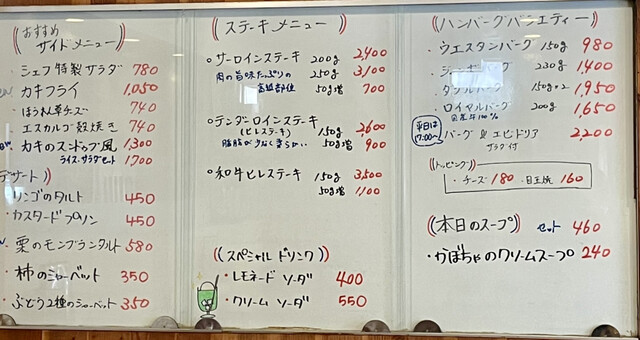 おすすめ
サイドメニュー
・シェフ特製サラダ 780
カキフライ 1,050
・ほうれん草チーズ 740
・エスカルゴ殻焼き 740
・カキのスンドゥブ風 1,300
ライス・サラダセット 1,700
デザート
リンゴのタルト 450
・カスタードプリン 450
栗のモンブランタルト 580
・柿のシャーベット 350
・ぶどう2種のシャーベット 350
((ステーキメニュー))
○サーロインステーキ 200g 2,400
肉の旨味たっぷりの 250g 3,100
高級部位 50g増 700
○テンダーロインステーキ
(ヒレステーキ) 150g 2,600
脂肪が少なく柔らかい 50g増 900
○和牛ヒレステーキ 150g 3,500
50g増 1,100
((スペシャルドリンク))
・レモネードソーダ 400
・クリームソーダ 550
((ハンバーグバラエティー))
・ウエスタンバーグ 150g 980
230g 1,400
・ダブルバーグ 150g×2 1,950
・ロイヤルバーグ 200g 1,650
平日は
17:00〜
・バーグ&エビドリア 2,200
サラダ付
((トッピング))
・チーズ 180 ・目玉焼 160
((本日のスープ)) セット 460
・かぼちゃのクリームスープ 240